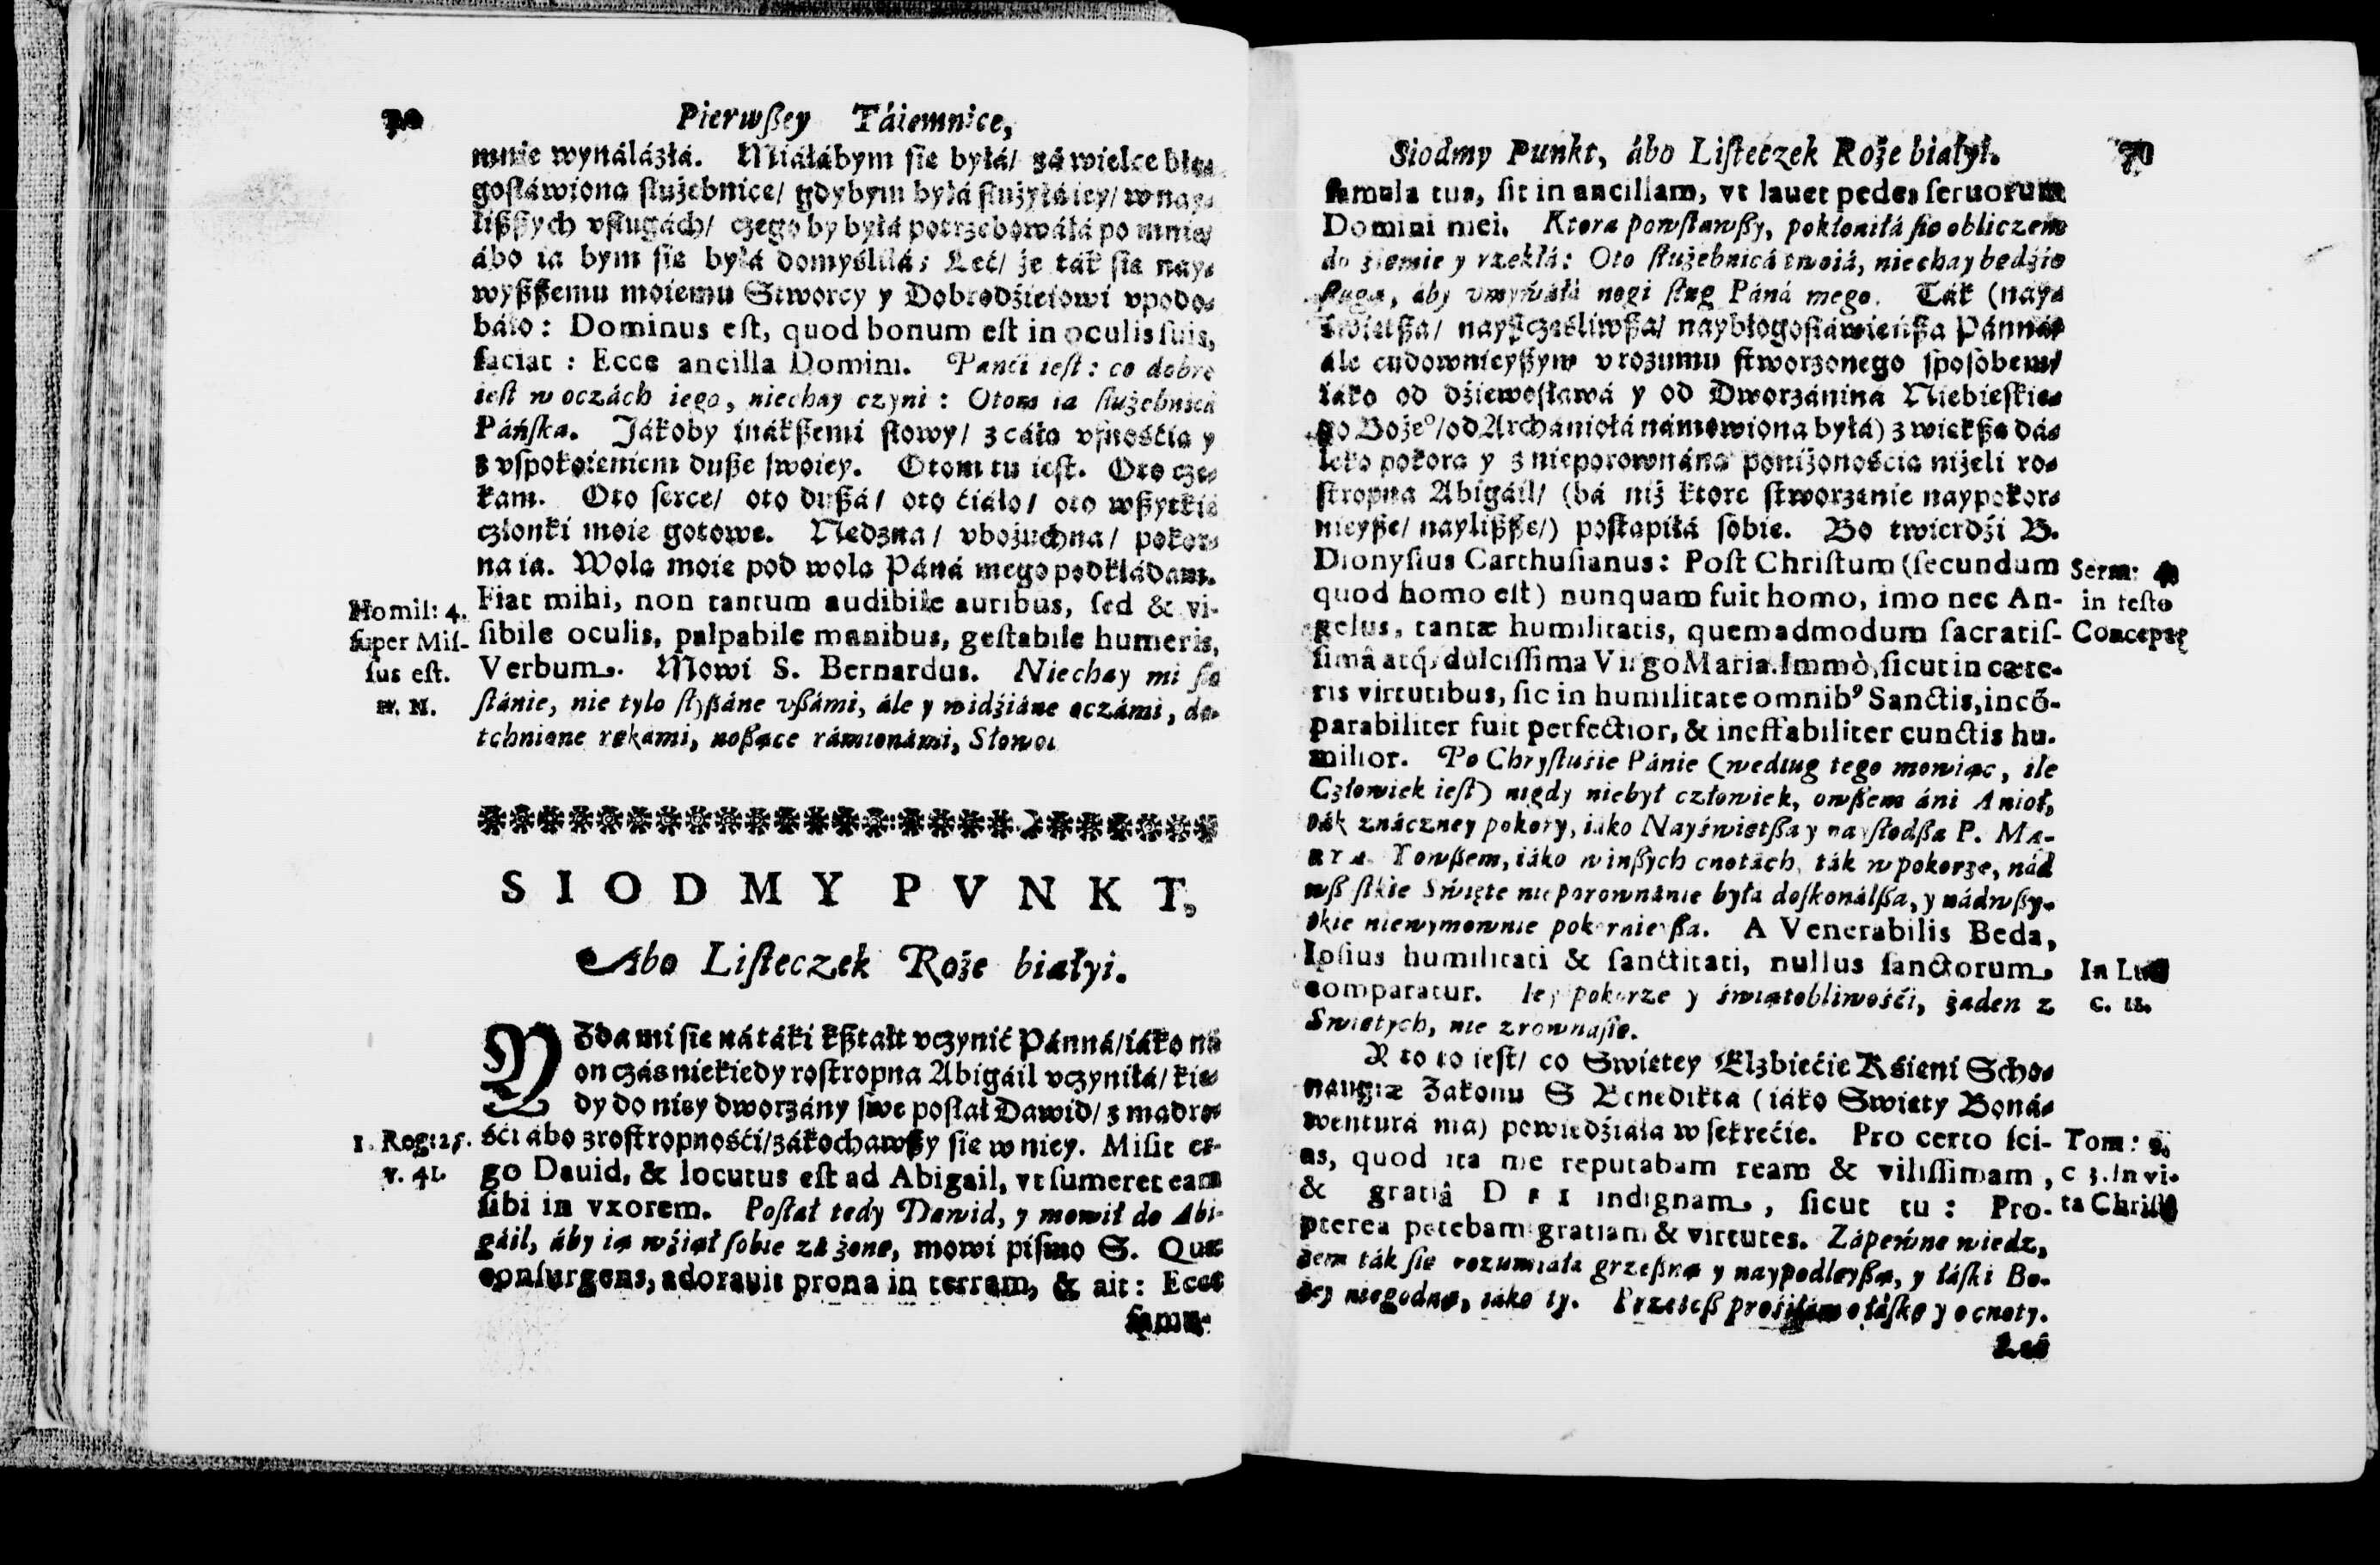 Pierwßey Táiemnice,
mnie wynálázłá. Miáłábym sie byłá/ zá wielce bło-
gosłáwioną służebnice/ gdybym byłá służyłá iey/ w nay-
lißßych vsługách/ czego by byłá potrzebowáłá po mnie/
ábo ia bym sie byłá domyśliłá; Leć/ że ták sie nay-
wyßßemu moiemu Stworcy y Dobrodźieiowi vpodo-
báło: Dominus est, quod bonum est in oculis suis,
faciat: Ecce ancilla Domini. Panći iest: co dobre
iest w oczách iego, niechay czyni: Otom ia służebnicá
Páńska. Jákoby inákßemi słowy/ z cáłą vfnośćią y
z vspokoieniem duße swoiey. Otom tu iest. Oto cze-
kam. Oto serce/ oto dußá/ oto ćiáło/ oto wßytkie
członki moie gotowe. Nedzna/ vbożuchna/ pokor-
na ia. Wolą moie pod wolą Páná mego podkłádam.
Homil: 4.
super Mis-
sus est.
w. N.
Fiat mihi, non tantum audibile auribus, sed & vi-
sibile oculis, palpabile manibus, gestabile humeris,
Verbum. Mowi S. Bernardus. Niechay mi sie
stánie, nie tylo słyßáne vßámi, ále y widźiáne oczámi, do-
tchnione rękámi, noßące rámionámi, Słowo.
SIODMY PVNKT,
Abo Listeczek Roże białyi.
Zda mi sie ná táki kßtałt vczynić Pánná/ iáko ná
on czás niekiedy rostropna Abigáil vczyniłá/ kie-
dy do niey dworzány swe posłał Dawid/ z mądro-
śći ábo z rostropnośći/ zákochawßy sie w niey. Misit er-
1. Reg: 25.
v. 41.
go Dauid, & locutus est ad Abigail, vt sumeret eam
sibi in vxorem. Posłał tedy Dawid, y mowił do Abi-
gáil, áby ią wźiął sobie zá żonę, mowi pismo S. Quæ
consurgens, adorauit prona in terram, & ait: Ecce
famu-
Siodmy Punkt, ábo Listeczek Roże białył.
70
famula tua, sit in ancillam, vt lauet pedes seruorum
Domini mei. Ktora powstawßy, pokłoniłá sie obliczem
do źiemie y rzekłá: Oto służebnicá twoiá, niechay będźie
sługą, áby vmywáłá nogi sług Páná mego. Ták (nay-
świetßa/ nayßcześliwßa/ naybłogosłáwieńßa Pánná/
ále cudownieyßym v rozumu stworzonego sposobem/
iáko od dźiewosławá y od Dworzániná Niebieskie-
go Boże⁰/ od Archániołá námowiona byłá) z wiekßą dá-
leko pokorą y z nieporownáną poniżonośćią niżeli ro-
stropna Abigáil/ (bá niż ktore stworzenie naypokor-
nieyße/ naylißße/) postąpiłá sobie. Bo twierdźi B.
Dionysius Carthusianus: Post Christum (secundum
quod homo est) nunquam fuit homo, imo nec An-
gelus, tantæ humilitatis, quemadmodum sacratis-
sima atq; dulcissima Virgo Maria. Immò, sicut in cæte-
ris virtutibus, sic in humilitate omnibꝰ Sanctis, incõ-
parabiliter fuit perfectior, & ineffabiliter cunctis hu-
milior. Po Chrystusie Pánie (według tego mowiąc, ile
Człowiek iest) nigdy niebył człowiek, owßem áni Anioł,
ták znáczney pokory, iáko Nayświetßa y naysłodßa P. MA-
RYA. Y owßem, iáko w inßych cnotách, ták w pokorze, nád
wßystkie Święte nieporownánie była doskonálßa, y nád wßy-
tkie niewymownie pokornieyßa. A Venerabilis Beda,
Ipsius humilitati & sanctitati, nullus sanctorum
comparatur. Iey pokorze y świątobliwośći, żaden z
Swietych, nie zrowna sie.
Serm:
in festo
Concept
In Luc
c. 18.
A to to iest/ co Swietey Elzbiećie Kśieni Scho-
naugiæ Zakonu S Benedikta (iáko Swiety Boná-
wenturá ma) powiedźiała w sekrećie. Pro certo sci-
as, quod ita me reputabam ream & vilissimam,
& gratiâ DEI indignam, sicut tu: Pro-
pterea petebam gratiam & virtutes. Zápewne wiedz,
żem ták sie rozumiała grzeßną y naypodleyßą, y łáski Bo-
żey niegodną, iáko ty. Przetoß prośiłám o łáskę y o cnoty.
Tom:
c 3. In vi-
ta Christi